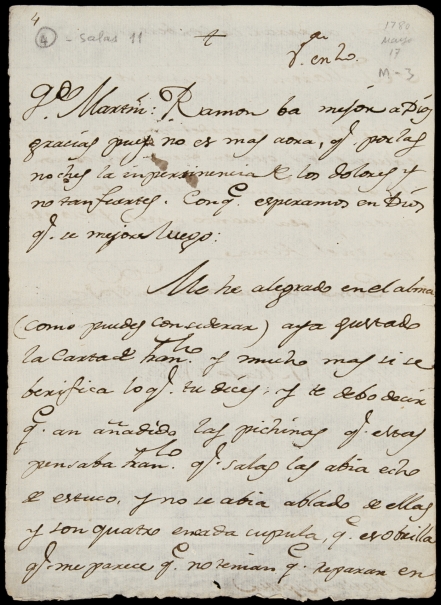 4
4 - Salas 11
1780
Marzo
17
M-3
+
Qdo. Martin: Ramon ba mejor a Dios
gracias pues no es mas aora, q. por las
noches la inpertinencia de los dolores y
no tan fuertes. Conq. esperamos en Dios
q. se mejore luego:
Me he alegrado en el alma
(como puedes considerar) aya gustado
la Carta de Franco. y mucho mas si se
berifica lo q. tu dices; y te debo decir
q. an añadido las pichinas q. estas
pensaba Franco. q. Salas las abia echo
de estuco, y no se abia ablado de ellas
y son quatro en cada cupula, q. es obrilla
q. me parece q. no tenian q. reparar en